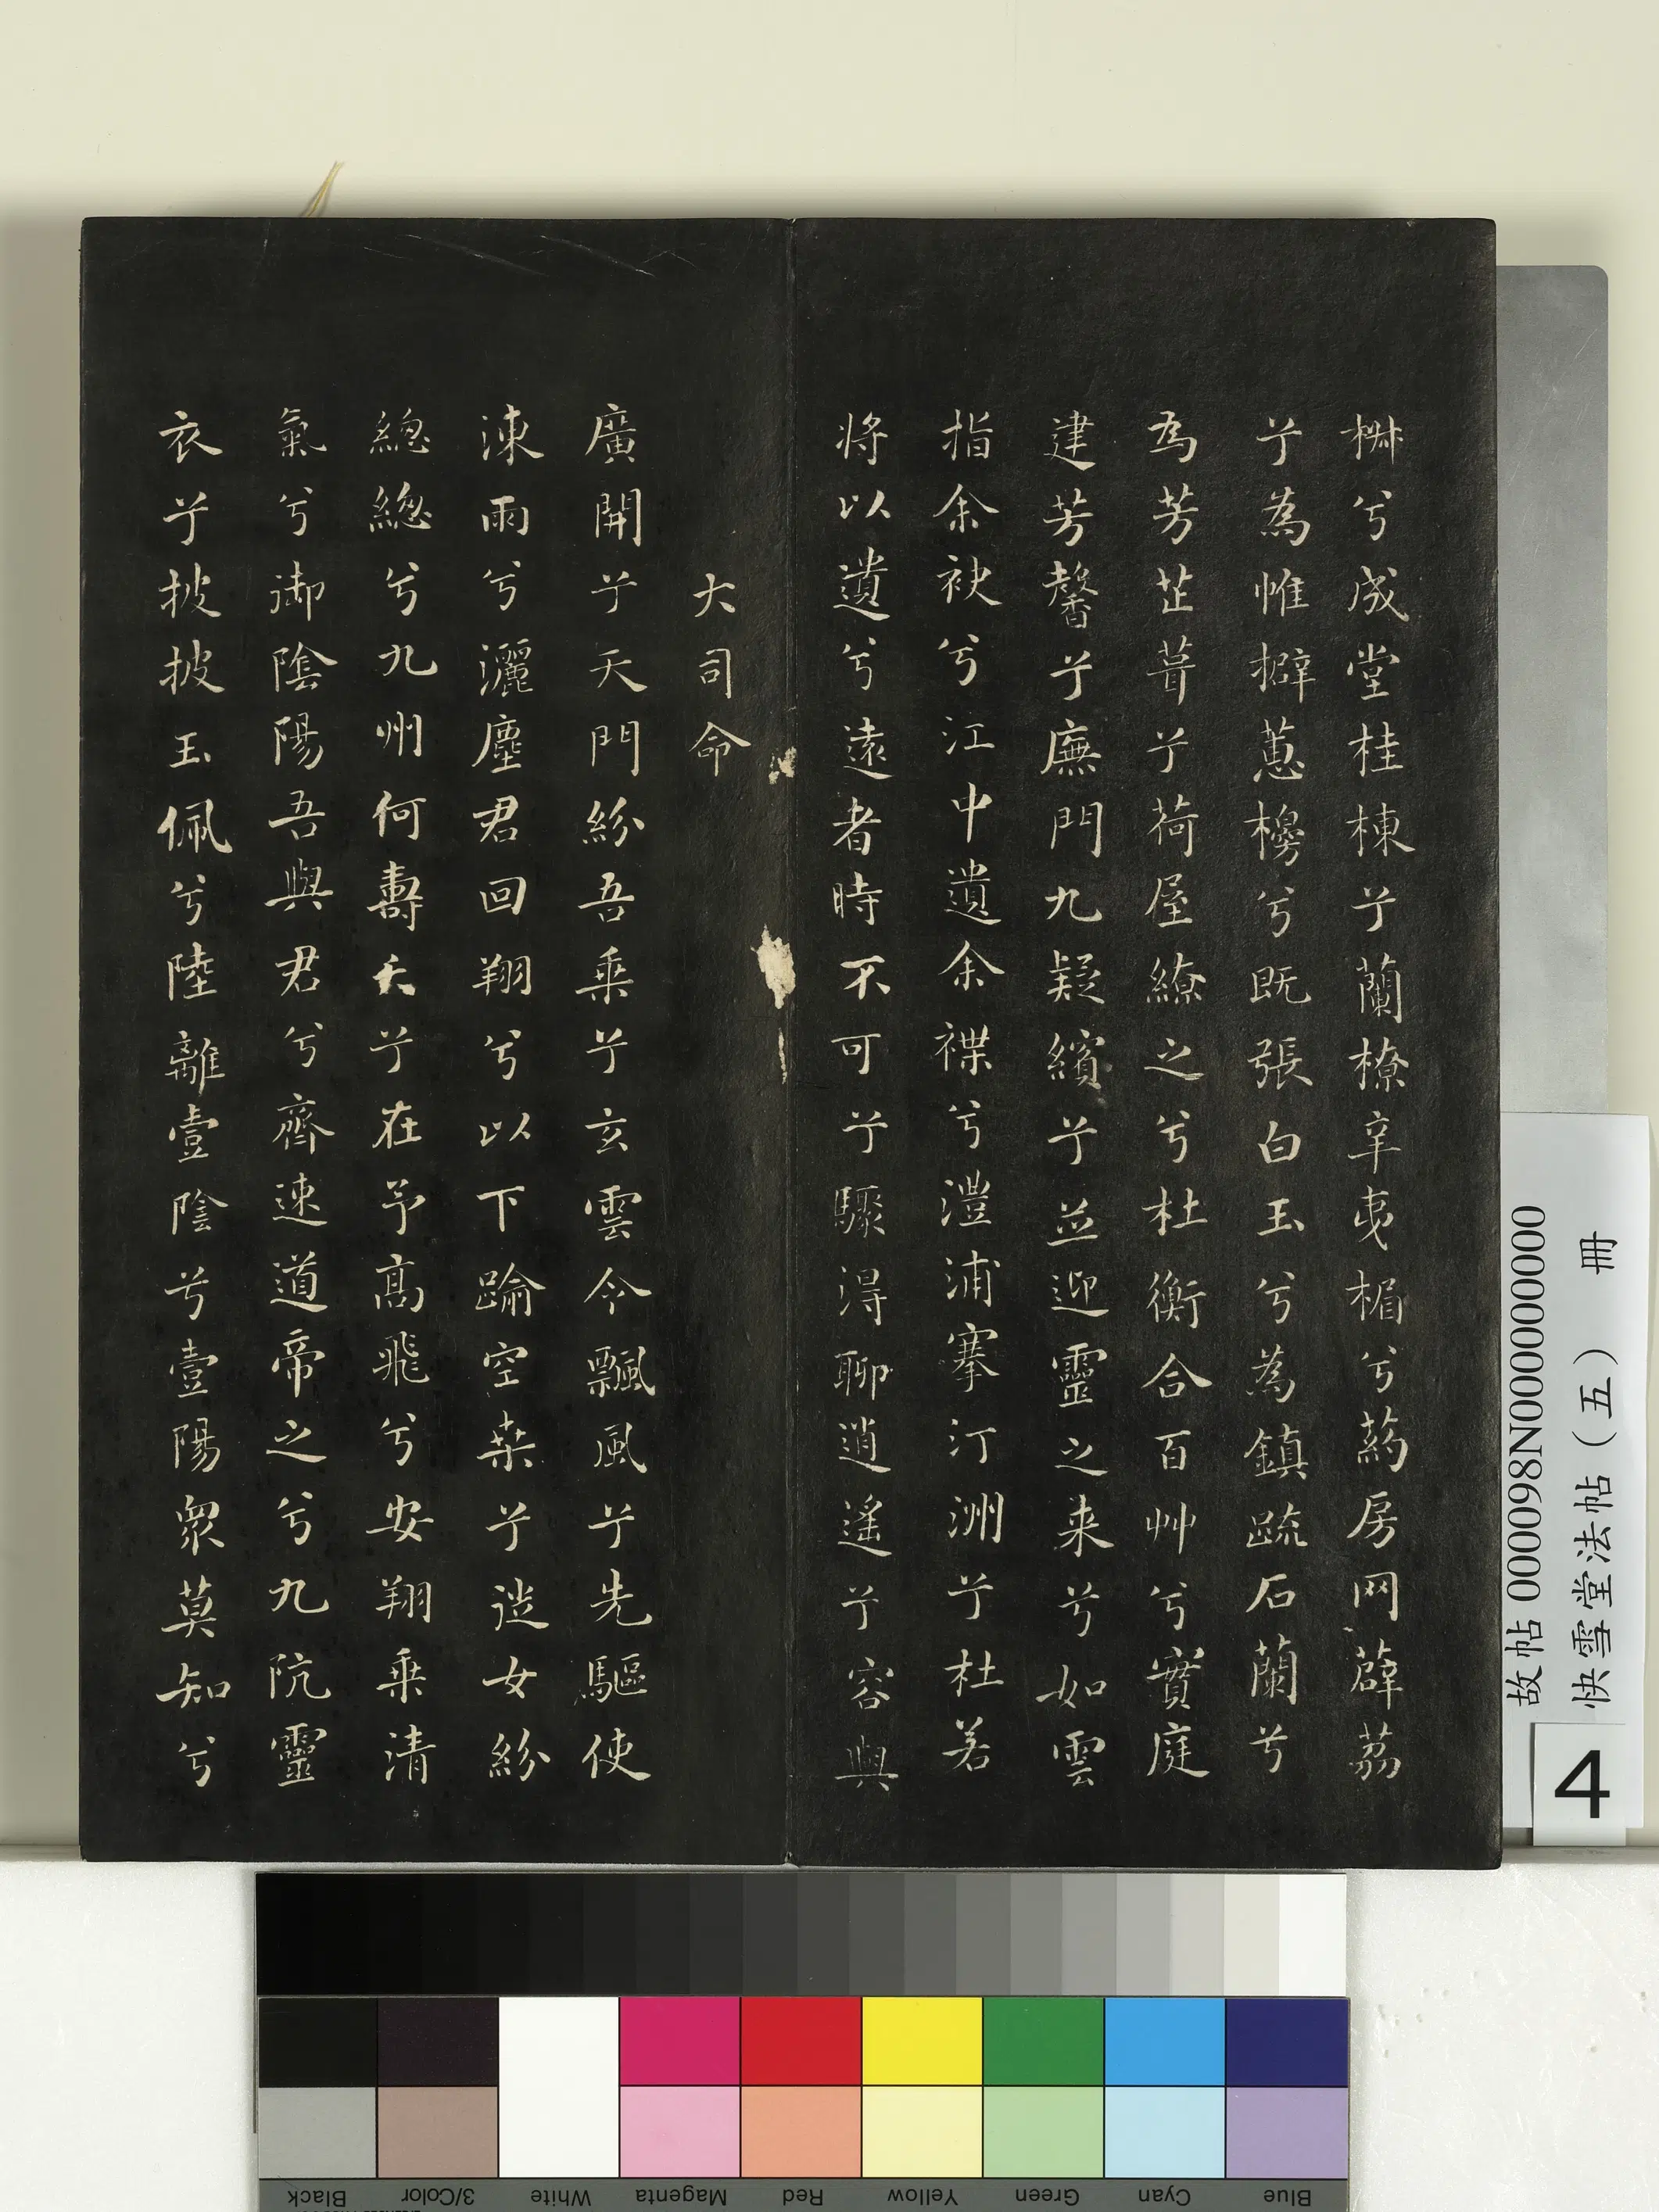 椒兮成堂桂棟兮蘭橑辛夷楣兮葯房网薜荔
兮為帷擗蕙櫋兮既張白玉兮為鎮疏石蘭兮
為芳芷葺兮荷屋繚之兮杜衡合百艸兮實庭
建芳馨兮廡門九疑繽兮並迎靈之来兮如雲
指余袂兮江中遺余褋兮澧浦搴汀洲兮杜若
将以遺兮遠者時不可兮驟得聊逍遙兮容與
大司命
廣開兮天門紛吾乗兮玄雲令飄風兮先驅使
涷雨兮灑塵君回翔兮以下踰空桒兮從女紛
總總兮九州何壽夭兮在予高飛兮安翔乗清
氣兮御陰陽吾與君兮齊速道帝之兮九阬靈
衣兮披披玉佩兮陸離壹陰兮壹陽衆莫知兮
故帖 000098N000000000
快雪堂法帖（五） 冊
4
Blue Cyan Green Yellow Red Magenta White 3/Color Black